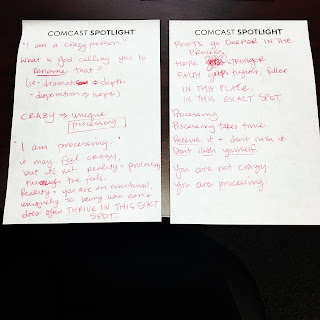 COMCAST SPOTLIGHT
"I am a crazy person."
What is God calling you to
Rename that?
(ie - dramatic → depth
- desperation → hope)
CRAZY → unique
processing
"I am processing."
it may feel CRAZY,
but it's not. Reality = processing
through the feels.
Reality = you are an emotional,
uniquely so, being who can &
does often THRIVE IN THIS EXACT
SPOT.
COMCAST SPOTLIGHT
ROOTS go DEEPER IN THE
PROCESS.
HOPE STRONGER
FAITH gets tighter, fuller
IN THIS PLACE.
IN THIS EXACT SPOT.
Processing
Processing takes time.
Receive it + don't rush it.
Don't rush yourself.
You are not crazy.
You are processing.